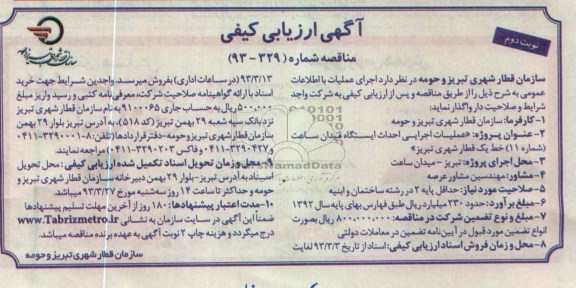 آگهی ارزیابی کیفی
مناقصه شماره (۳۲۹ - ۹۳)
نوبت دوم
سازمان قطار شهری تبریز و حومه در نظر دارد اجرای عملیات با اطلاعات
عمومی به شرح ذیل را از طریق مناقصه و پس از ارزیابی کیفی به شرکت واجد
شرایط و صلاحیت دار واگذار نماید:
۱- کارفرما: سازمان قطار شهری تبریز و حومه
۲- عنوان پروژه: «عملیات اجرایی احداث ایستگاه میدان ساعت
(شماره ۱۱) خط یک قطار شهری تبریز»
۳- محل اجرای پروژه: تبریز - میدان ساعت
۴- مشاور: مهندسین مشاور عرصه
۵- صلاحیت مورد نیاز: حداقل پایه ۲ در رشته ساختمان و ابنیه
۶- مبلغ برآورد: حدود ۲۳۰ میلیارد ریال طبق فهارس بهای پایه سال ۱۳۹۲
۷- مبلغ و نوع تضمین شرکت در مناقصه: ۸۰۰,۰۰۰,۰۰۰ ریال بصورت
انواع تضمین مورد قبول در آیین‌نامه تضمین در معاملات دولتی
۸- محل و زمان فروش اسناد ارزیابی کیفی: اسناد از تاریخ ۹۳/۳/۳ لغایت
۹۳/۳/۱۳ (در ساعات اداری) بفروش میرسد. واجدین شرایط جهت خرید
اسناد با ارائه گواهینامه صلاحیت شرکت، معرفی نامه کتبی و رسید واریز مبلغ
۵۰۰,۰۰۰ ریال به حساب جاری ۹۱۰۰۰۶۵ به نام سازمان قطار شهری تبریز
نزد بانک سپه شعبه ۲۹ بهمن تبریز (کد ۵۱۸)، به آدرس تبریز بلوار ۲۹ بهمن
سازمان قطار شهری تبریز و حومه - دفتر قراردادها (تلفن: ۸-۳۲۹۰۰۰۱-۰۴۱۱
و ۳۲۹۰۴۲۷-۰۴۱۱ و فاکس ۳۲۹۰۲۰۳-۰۴۱۱) مراجعه نمایند.
۹- محل و زمان تحویل اسناد تکمیل شده ارزیابی کیفی: محل تحویل
اسناد به آدرس تبریز - بلوار ۲۹ بهمن دبیرخانه سازمان قطار شهری تبریز و
حومه و حداکثر تا ساعت ۱۴ روز سه‌شنبه مورخ ۹۳/۳/۲۷ میباشد.
۱۰- مدت اعتبار پیشنهادها: ۱۸۰ روز از آخرین مهلت تسلیم پیشنهادها
ضمناً این آگهی در سایت سازمان به نشانی www.Tabrizmetro.ir
درج میگردد و هزینه چاپ ۲ نوبت آگهی به عهده برنده مناقصه میباشد.
سازمان قطار شهری تبریز و حومه
NamadData